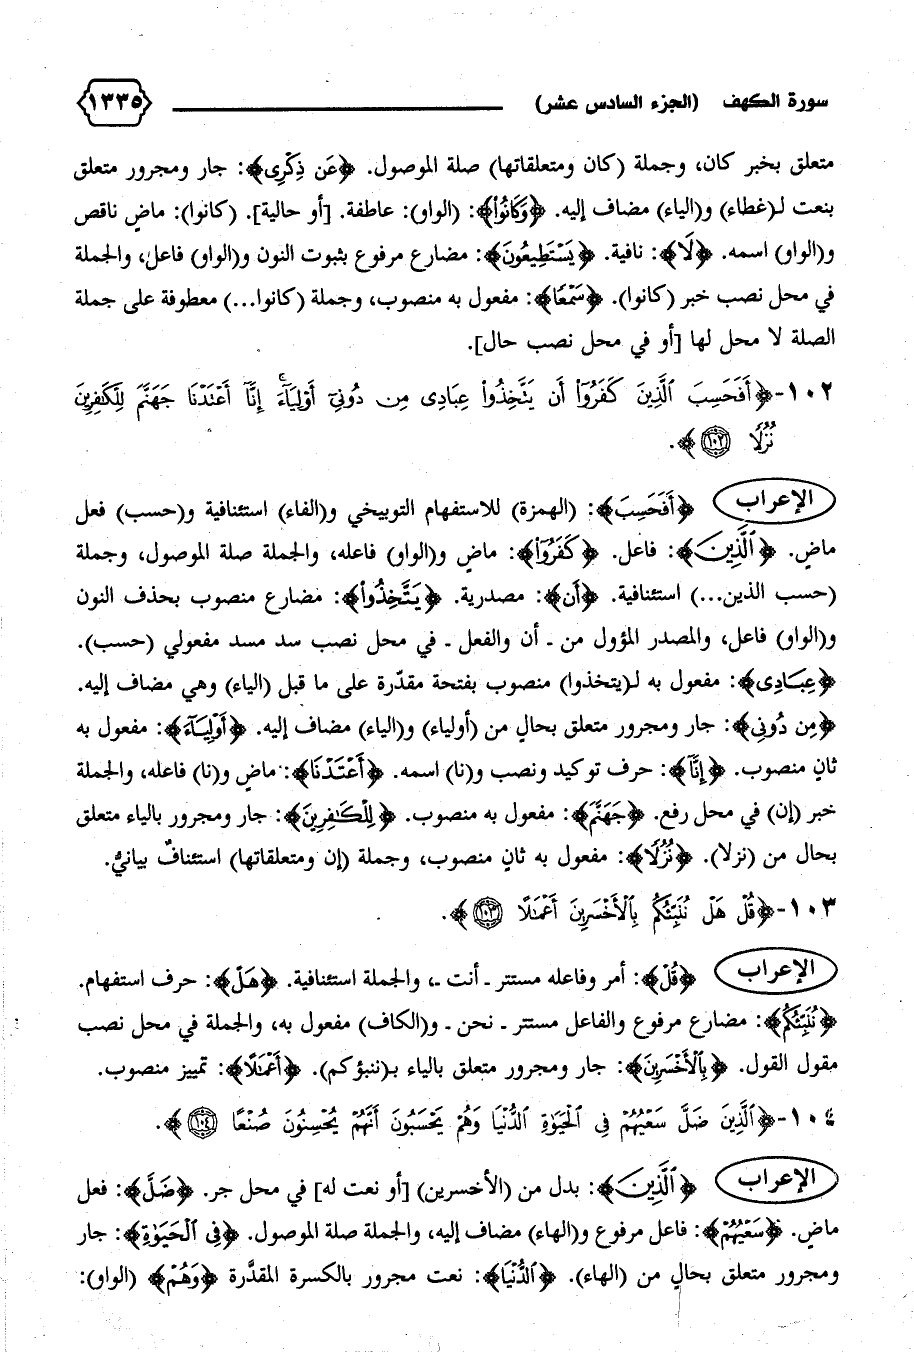 سورة الكهف (الجزء السادس عشر) ١٣٣٥
متعلق بخبر كان، وجملة (كان ومتعلقاتها) صلة الموصول. ﴿عَن ذِكْرِى﴾: جار ومجرور متعلق
بنعت لـ(غطاء) و(الياء) مضاف إليه. ﴿وَكَانُوا۟﴾: (الواو): عاطفة. [أو حالية]. (كانوا): ماضٍ ناقص
و(الواو) اسمه. ﴿لَا﴾: نافية. ﴿يَسْتَطِيعُونَ﴾: مضارع مرفوع بثبوت النون و(الواو) فاعل، والجملة
في محل نصب خبر (كانوا). ﴿سَمْعًا﴾: مفعول به منصوب، وجملة (كانوا...) معطوفة على جملة
الصلة لا محل لها [أو في محل نصب حال].
١٠٢-﴿أَفَحَسِبَ ٱلَّذِينَ كَفَرُوٓا۟ أَن يَتَّخِذُوا۟ عِبَادِى مِن دُونِىٓ أَوْلِيَآءَ ۚ إِنَّآ أَعْتَدْنَا جَهَنَّمَ لِلْكَٰفِرِينَ
نُزُلًا ١٠٢﴾.
الإعراب ﴿أَفَحَسِبَ﴾: (الهمزة) للاستفهام التوبيخي و(الفاء) استئنافية و(حسب) فعل
ماضٍ. ﴿ٱلَّذِينَ﴾: فاعل. ﴿كَفَرُوٓا۟﴾: ماضٍ و(الواو) فاعله، والجملة صلة الموصول، وجملة
(حسب الذين...) استئنافية. ﴿أَن﴾: مصدرية. ﴿يَتَّخِذُوا۟﴾: مضارع منصوب بحذف النون
و(الواو) فاعل، والمصدر المؤول من ـ أن والفعل ـ في محل نصب سد مسد مفعولي (حسب).
﴿عِبَادِى﴾: مفعول به لـ(يتخذوا) منصوب بفتحة مقدّرة على ما قبل (الياء) وهي مضاف إليه.
﴿مِن دُونِى﴾: جار ومجرور متعلق بحال من (أولياء) و(الياء) مضاف إليه. ﴿أَوْلِيَآءَ﴾: مفعول به
ثانٍ منصوب. ﴿إِنَّآ﴾: حرف توكيد ونصب و(نا) اسمه. ﴿أَعْتَدْنَا﴾: ماضٍ و(نا) فاعله، والجملة
خبر (إن) في محل رفع. ﴿جَهَنَّمَ﴾: مفعول به منصوب. ﴿لِلْكَٰفِرِينَ﴾: جار ومجرور بالياء متعلق
بحال من (نزلا). ﴿نُزُلًا﴾: مفعول به ثانٍ منصوب، وجملة (إن ومتعلقاتها) استئنافٌ بيانيٌ.
١٠٣-﴿قُلْ هَلْ نُنَبِّئُكُم بِٱلْأَخْسَرِينَ أَعْمَٰلًا ١٠٣﴾.
الإعراب ﴿قُلْ﴾: أمر وفاعله مستتر ـ أنت ـ، والجملة استئنافية. ﴿هَلْ﴾: حرف استفهام.
﴿نُنَبِّئُكُم﴾: مضارع مرفوع والفاعل مستتر ـ نحن ـ و(الكاف) مفعول به، والجملة في محل نصب
مقول القول. ﴿بِٱلْأَخْسَرِينَ﴾: جار ومجرور متعلق بالياء بـ(ننبؤكم). ﴿أَعْمَٰلًا﴾: تمييز منصوب.
١٠٤-﴿ٱلَّذِينَ ضَلَّ سَعْيُهُمْ فِى ٱلْحَيَوٰةِ ٱلدُّنْيَا وَهُمْ يَحْسَبُونَ أَنَّهُمْ يُحْسِنُونَ صُنْعًا ١٠٤﴾.
الإعراب ﴿ٱلَّذِينَ﴾: بدل من (الأخسرين) [أو نعت له] في محل جر. ﴿ضَلَّ﴾: فعل
ماضٍ. ﴿سَعْيُهُمْ﴾: فاعل مرفوع و(الهاء) مضاف إليه، والجملة صلة الموصول. ﴿فِى ٱلْحَيَوٰةِ﴾: جار
ومجرور متعلق بحالٍ من (الهاء). ﴿ٱلدُّنْيَا﴾: نعت مجرور بالكسرة المقدَّرة ﴿وَهُمْ﴾ (الواو):